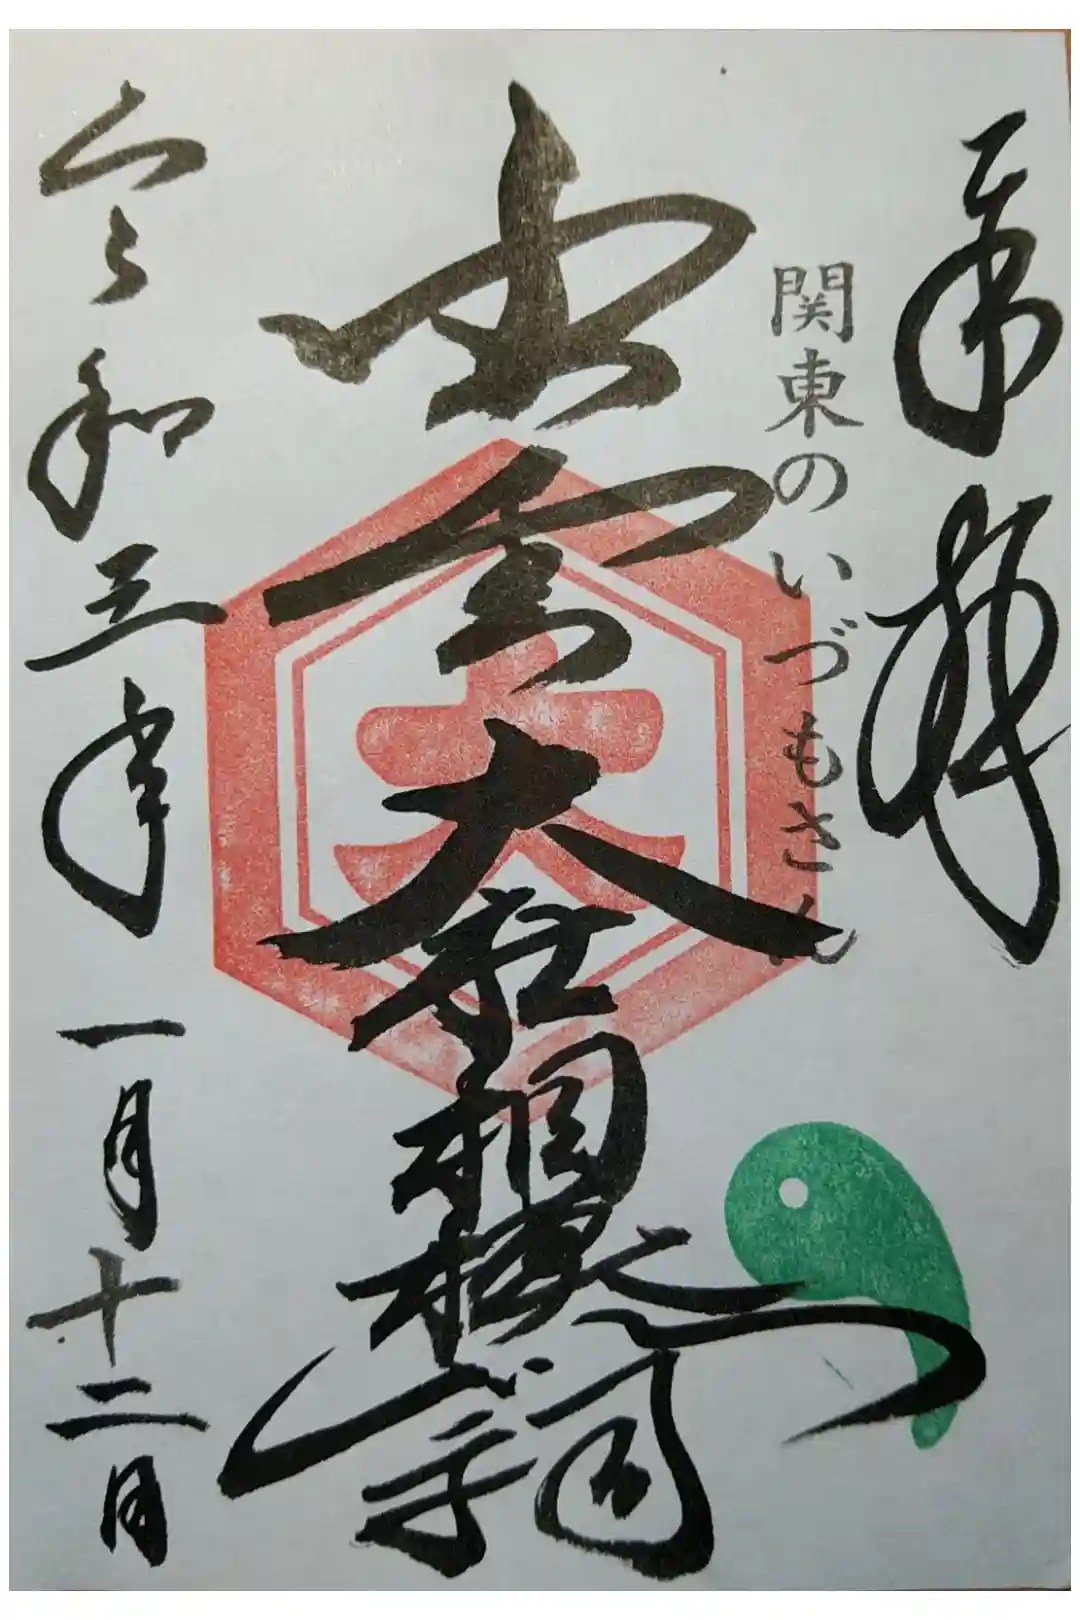 奉拝
関東のいづもさん
大
出雲大社相模分祠
令和三年一月十二日